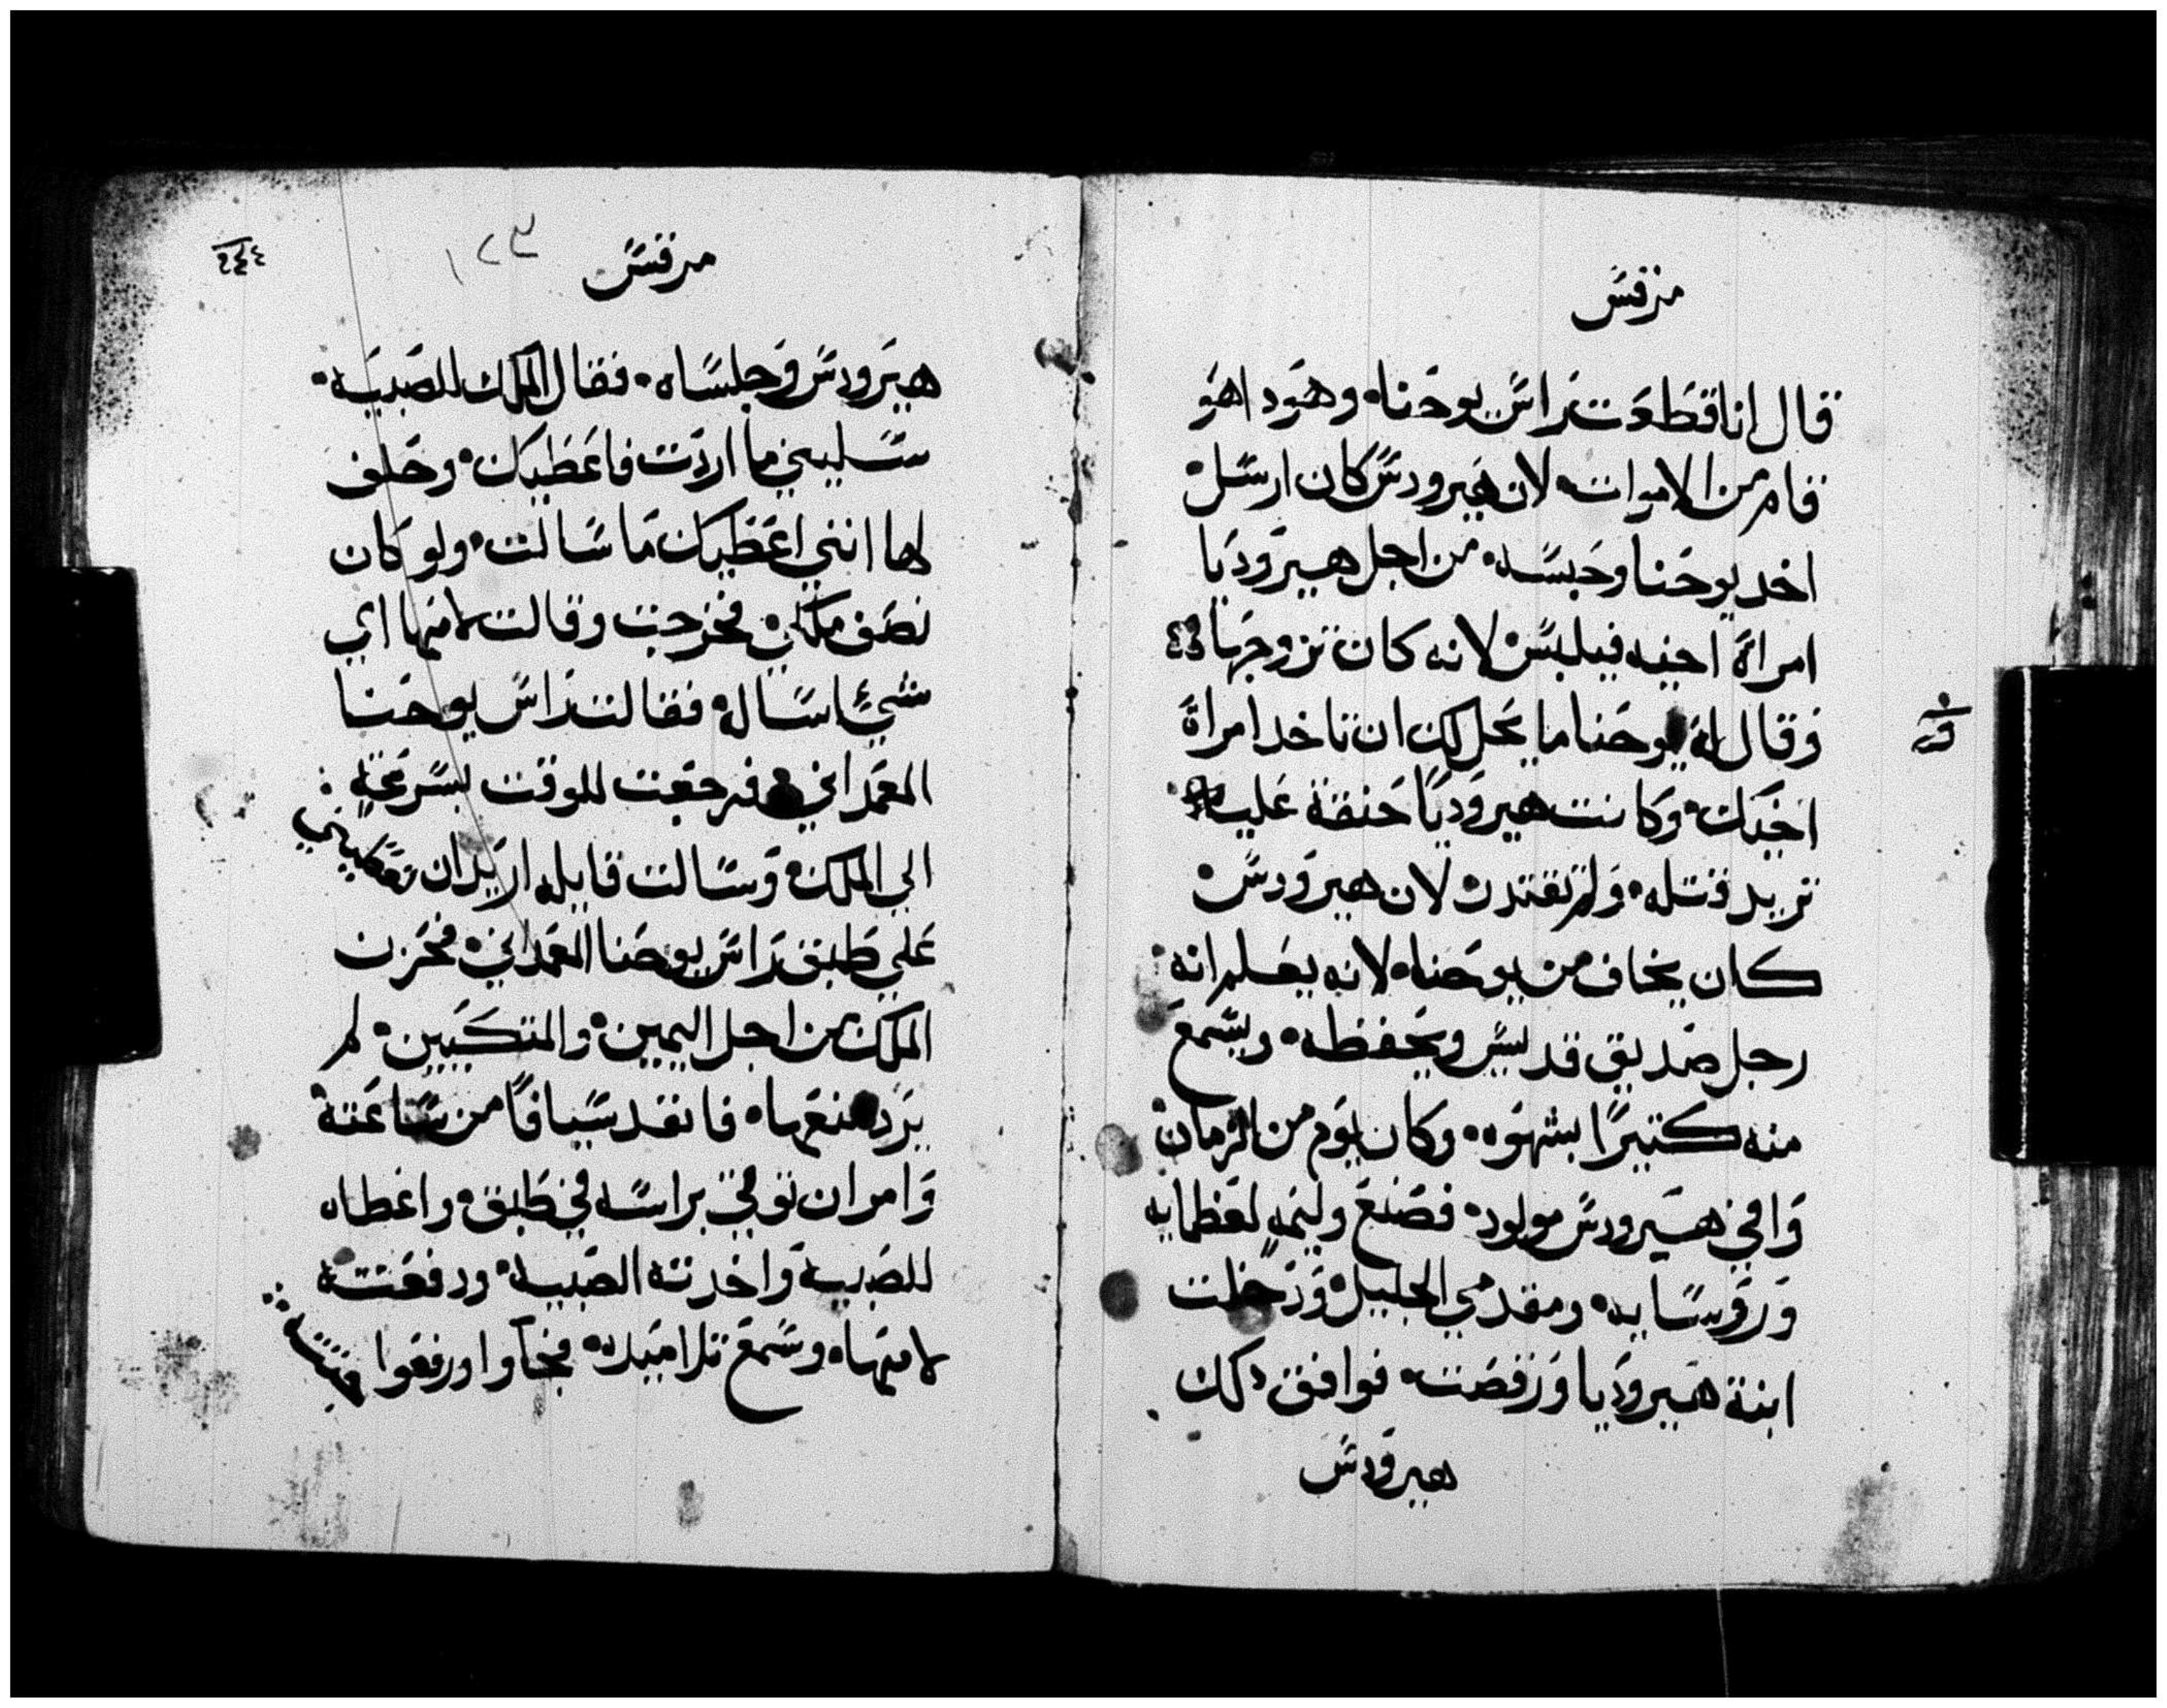 مرقس
قال انا قطعت راس يوحنا وهودا هو
قام من الاموات لان هيرودس كان ارسل
اخد يوحنا وحبسه من اجل هيروديا
امراة اخيه فيلبس لانه كان تزوجها
وقال له يوحنا ما يحل لك ان تاخد امراة
اخيك وكانت هيروديا حنقة عليه
تريد قتله ولم تقتدر لان هيرودس
كان يخاف من يوحنا لانه يعلم انه
رجل صديق قديس ويحفظه ويسمع
منه كتيرا بشهوه وكان يوم من الزمان
وافي هيرودس مولود فصنع وليمه لعظمايه
وروسايه ومقدمي الجليل ودخلت
ابنة هيروديا ورقصت فوافق دلك
هيرودس
مرقس
١٢٣
٢٤٤
هيرودس وجلساه فقال الملك للصبيه
سليني ما اردت فاعطيك وحلف
لها انني اعطيك ما سالت ولو كان
نصف ملكي فخرجت وقالت لامها اي
شيئ اساله فقالت راس يوحنا
المعمداني فرجعت للوقت بسرعة
الي الملك وسالت قايله اريد ان تعطيني
علي طبق راس يوحنا المعمداني فحزن
الملك من اجل اليمين والمتكيين لم
يرد منعها فانفد سيافا من ساعته
وامر ان توتي براسه في طبق واعطاه
للصبيه واخدته الصبيه ودفعته
لامها وسمع تلاميده فجاوا ورفعوا جتته